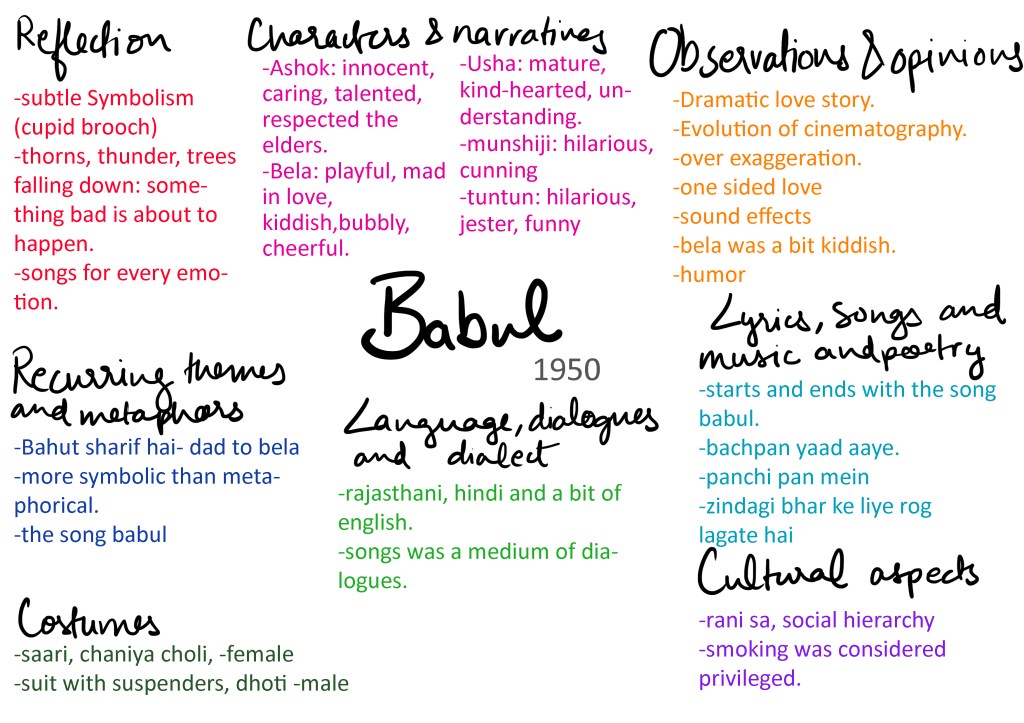 Reflection
-subtle Symbolism
(cupid brooch)
-thorns, thunder, trees
falling down: some-
thing bad is about to
happen.
-songs for every emo-
tion.
Characters & narratives
-Ashok: innocent,
caring, talented,
respected the
elders.
-Bela: playful, mad
in love,
kiddish,bubbly,
cheerful.
-Usha: mature,
kind-hearted, un-
derstanding.
-munshiji: hilarious,
cunning
-tuntun: hilarious,
jester, funny
Observations & opinions
-Dramatic love story.
-Evolution of cinematography.
-over exaggeration.
-one sided love
-sound effects
-bela was a bit kiddish.
-humor
Babul
1950
Recurring themes
and metaphors
-Bahut sharif hai- dad to bela
-more symbolic than meta-
phorical.
-the song babul
Language, dialogues
and dialect
-rajasthani, hindi and a bit of
english.
-songs was a medium of dia-
logues.
Lyrics, songs and
music and poetry
-starts and ends with the song
babul.
-bachpan yaad aaye.
-panchi pan mein
-zindagi bhar ke liye rog
lagate hai
Costumes
-saari, chaniya choli, -female
-suit with suspenders, dhoti -male
Cultural aspects
-rani sa, social hierarchy
-smoking was considered
privileged.